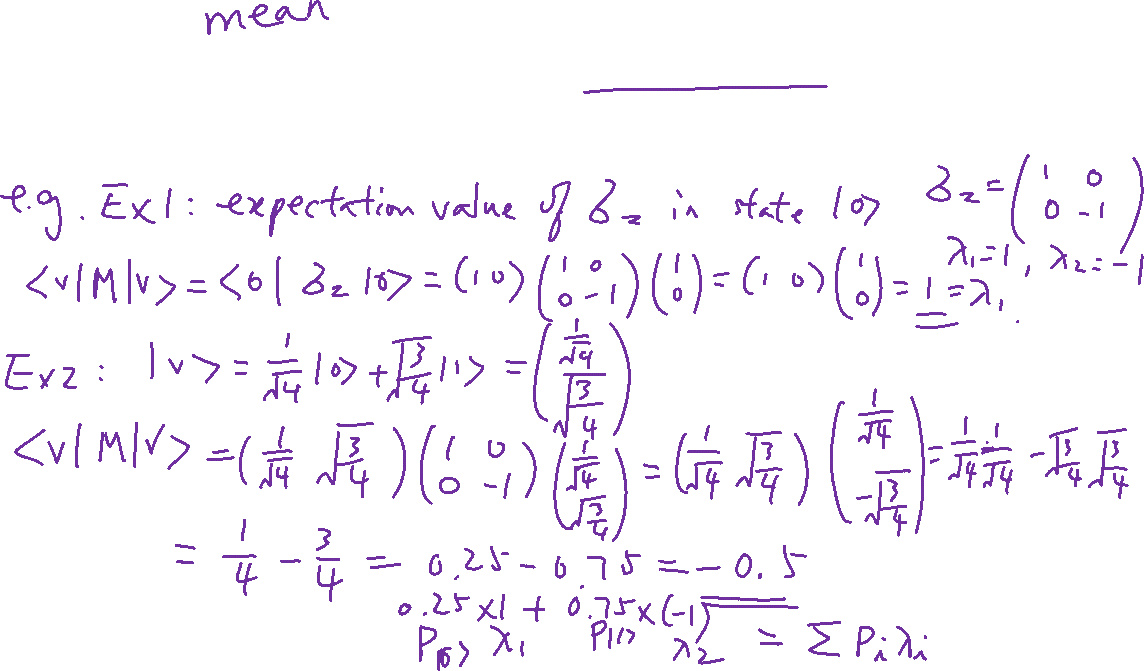 mean
e.g. Ex1: expectation value of σ_z in state |0> σ_z = (1 0; 0 -1)
λ₁=1, λ₂=-1
<v|M|v> = <0| σ_z |0> = (1 0)(1 0; 0 -1)(1; 0) = (1 0)(1; 0) = 1 = λ₁.
Ex2: |v> = 1/√4 |0> + √(3/4) |1> = (1/√4; √(3/4))
<v|M|v> = (1/√4 √(3/4))(1 0; 0 -1)(1/√4; √(3/4)) = (1/√4 √(3/4))(1/√4; -√(3/4)) = 1/√4 · 1/√4 - √(3/4) √(3/4)
= 1/4 - 3/4 = 0.25 - 0.75 = -0.5
0.25×1 + 0.75×(-1)
P|0> λ₁ P|1> λ₂ = Σ Pᵢλᵢ